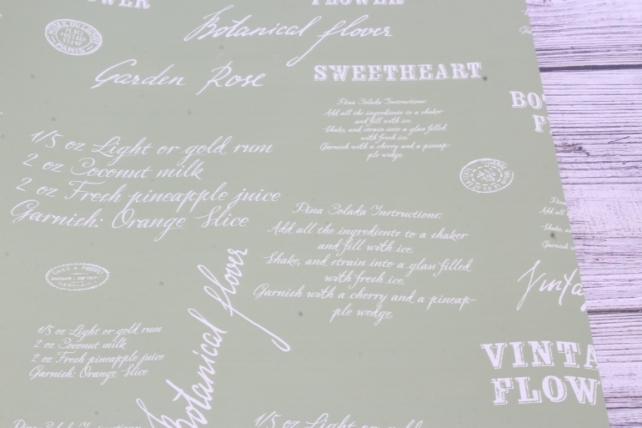 FLOWER
Botanical flover
Garden Rose
SWEETHEART
Pina Colada Instructions:
Add all the ingredients to a shaker
and fill with ice.
Shake, and strain into a glass filled
with fresh ice.
Garnish with a cherry and a pineap-
ple wedge.
1/5 oz Light or gold rum
2 oz Coconut milk
2 oz Fresh pineapple juice
Garnich: Orange Slice
Pina Colada Instructions:
Add all the ingredients to a shaker
and fill with ice.
Shake, and strain into a glass filled
with fresh ice.
Garnish with a cherry and a pineap-
ple wedge.
Botanical flover
Vinta
1/5 oz Light or gold rum
2 oz Coconut milk
2 oz Fresh pineapple juice
Garnich: Orange Slice
VINTA
FLOW
1/5 oz Light or gold